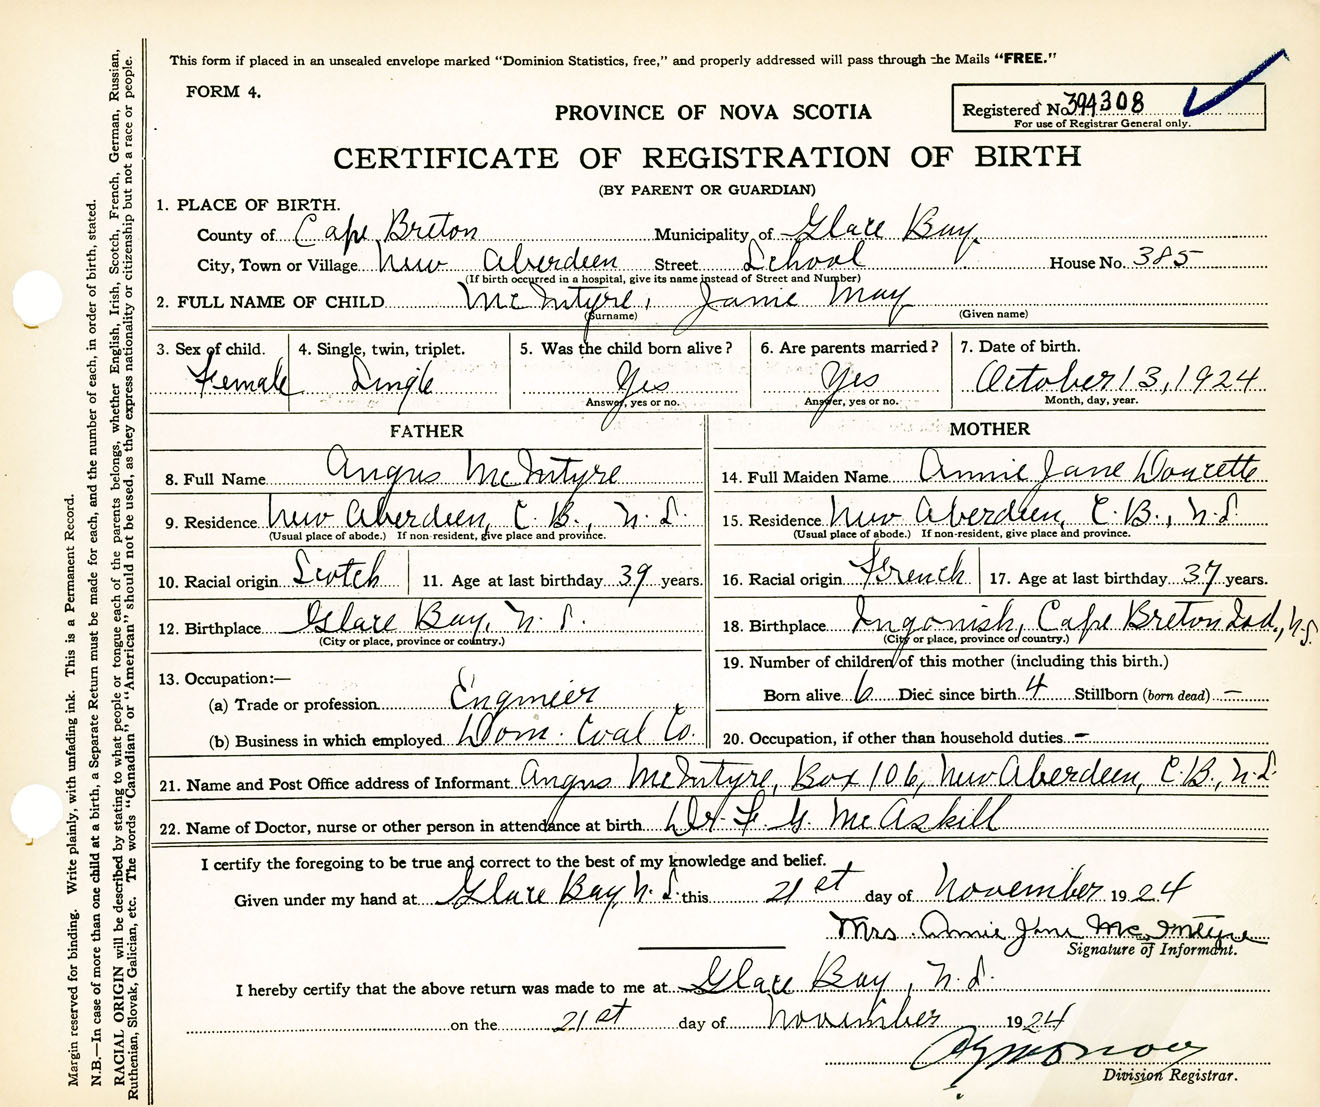 This form if placed in an unsealed envelope marked "Dominion Statistics, free," and properly addressed will pass through the Mails "FREE."
FORM 4.
PROVINCE OF NOVA SCOTIA
Registered No. 394308
For use of Registrar General only.
CERTIFICATE OF REGISTRATION OF BIRTH
(BY PARENT OR GUARDIAN)
1. PLACE OF BIRTH.
County of Cape Breton Municipality of Glace Bay
City, Town or Village New Aberdeen Street School House No. 385
(If birth occurred in a hospital, give its name instead of Street and Number)
2. FULL NAME OF CHILD McIntyre, Janie May
(Surname) (Given name)
3. Sex of child. 4. Single, twin, triplet. 5. Was the child born alive? 6. Are parents married? 7. Date of birth.
Female Single Yes Yes October 13, 1924
Answer, yes or no. Answer, yes or no. Month, day, year.
FATHER MOTHER
8. Full Name Angus McIntyre 14. Full Maiden Name Annie Jane Doucette
9. Residence New Aberdeen, C. B., N. S. 15. Residence New Aberdeen, C. B., N. S.
(Usual place of abode.) If non-resident, give place and province. (Usual place of abode.) If non-resident, give place and province.
10. Racial origin Scotch 11. Age at last birthday 39 years. 16. Racial origin French 17. Age at last birthday 37 years.
12. Birthplace Glace Bay, N. S. 18. Birthplace Ingonish, Cape Breton Isd., N.S.
(City or place, province or country.) (City or place, province or country.)
19. Number of children of this mother (including this birth.)
13. Occupation:—
(a) Trade or profession Engineer Born alive 6 Died since birth 4 Stillborn (born dead) —
(b) Business in which employed Dom. Coal Co. 20. Occupation, if other than household duties. –
21. Name and Post Office address of Informant Angus McIntyre, Box 106, New Aberdeen, C. B., N. S.
22. Name of Doctor, nurse or other person in attendance at birth Dr. F. G. McAskill
I certify the foregoing to be true and correct to the best of my knowledge and belief.
Given under my hand at Glace Bay, N. S. this 21st day of November 1924
Mrs. Annie Jane McIntyre
Signature of Informant.
I hereby certify that the above return was made to me at Glace Bay, N. S.
on the 21st day of November 1924
Division Registrar.
Margin reserved for binding. Write plainly, with unfading ink. This is a Permanent Record.
N.B.—In case of more than one child at a birth, a Separate Return must be made for each, and the number of each, in order of birth, stated.
RACIAL ORIGIN will be described by stating to what people or tongue each of the parents belongs, whether English, Irish, Scotch, French, German, Russian,
Ruthenian, Slovak, Galician, etc. The words "Canadian" or "American" should not be used, as they express nationality or citizenship but not a race or people.